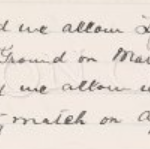 d we allow
Ground on Mar
we allow u
match on a